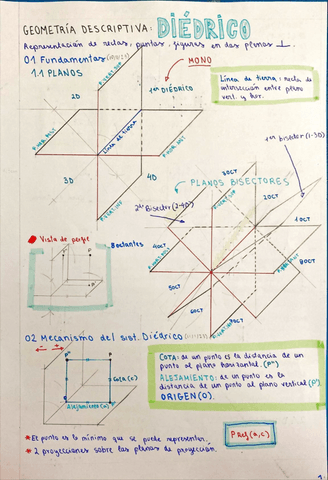 GEOMETRÍA DESCRIPTIVA: DIÉDRICO
Representación de rectas, puntos, figuras en dos planos ⊥.
01 Fundamentos
MONO
1.1 PLANOS
2D
1er DIÉDRICO
Línea de tierra: recta de
intersección entre plano
vert. y hor.
Línea de tierra
3D
4D
1er Bisector (1-3D)
PLANOS BISECTORES
2º Bisector (2-4D)
3OCT
2OCT
1OCT
4OCT
5OCT
6OCT
7OCT
8OCT
Vista de perfil
8octantes
P
02 Mecanismo del sist. Diédrico
P"
P
Cota (c)
Alejamiento (a)
P'
COTA: de un punto es la distancia de un
punto al plano horizontal. (P")
ALEJAMIENTO: de un punto es la
distancia de un punto al plano vertical (P')
ORIGEN (O).
P Ref (a, c)
* El punto es lo mínimo que se puede representar.
* 2 proyecciones sobre los planos de proyección.